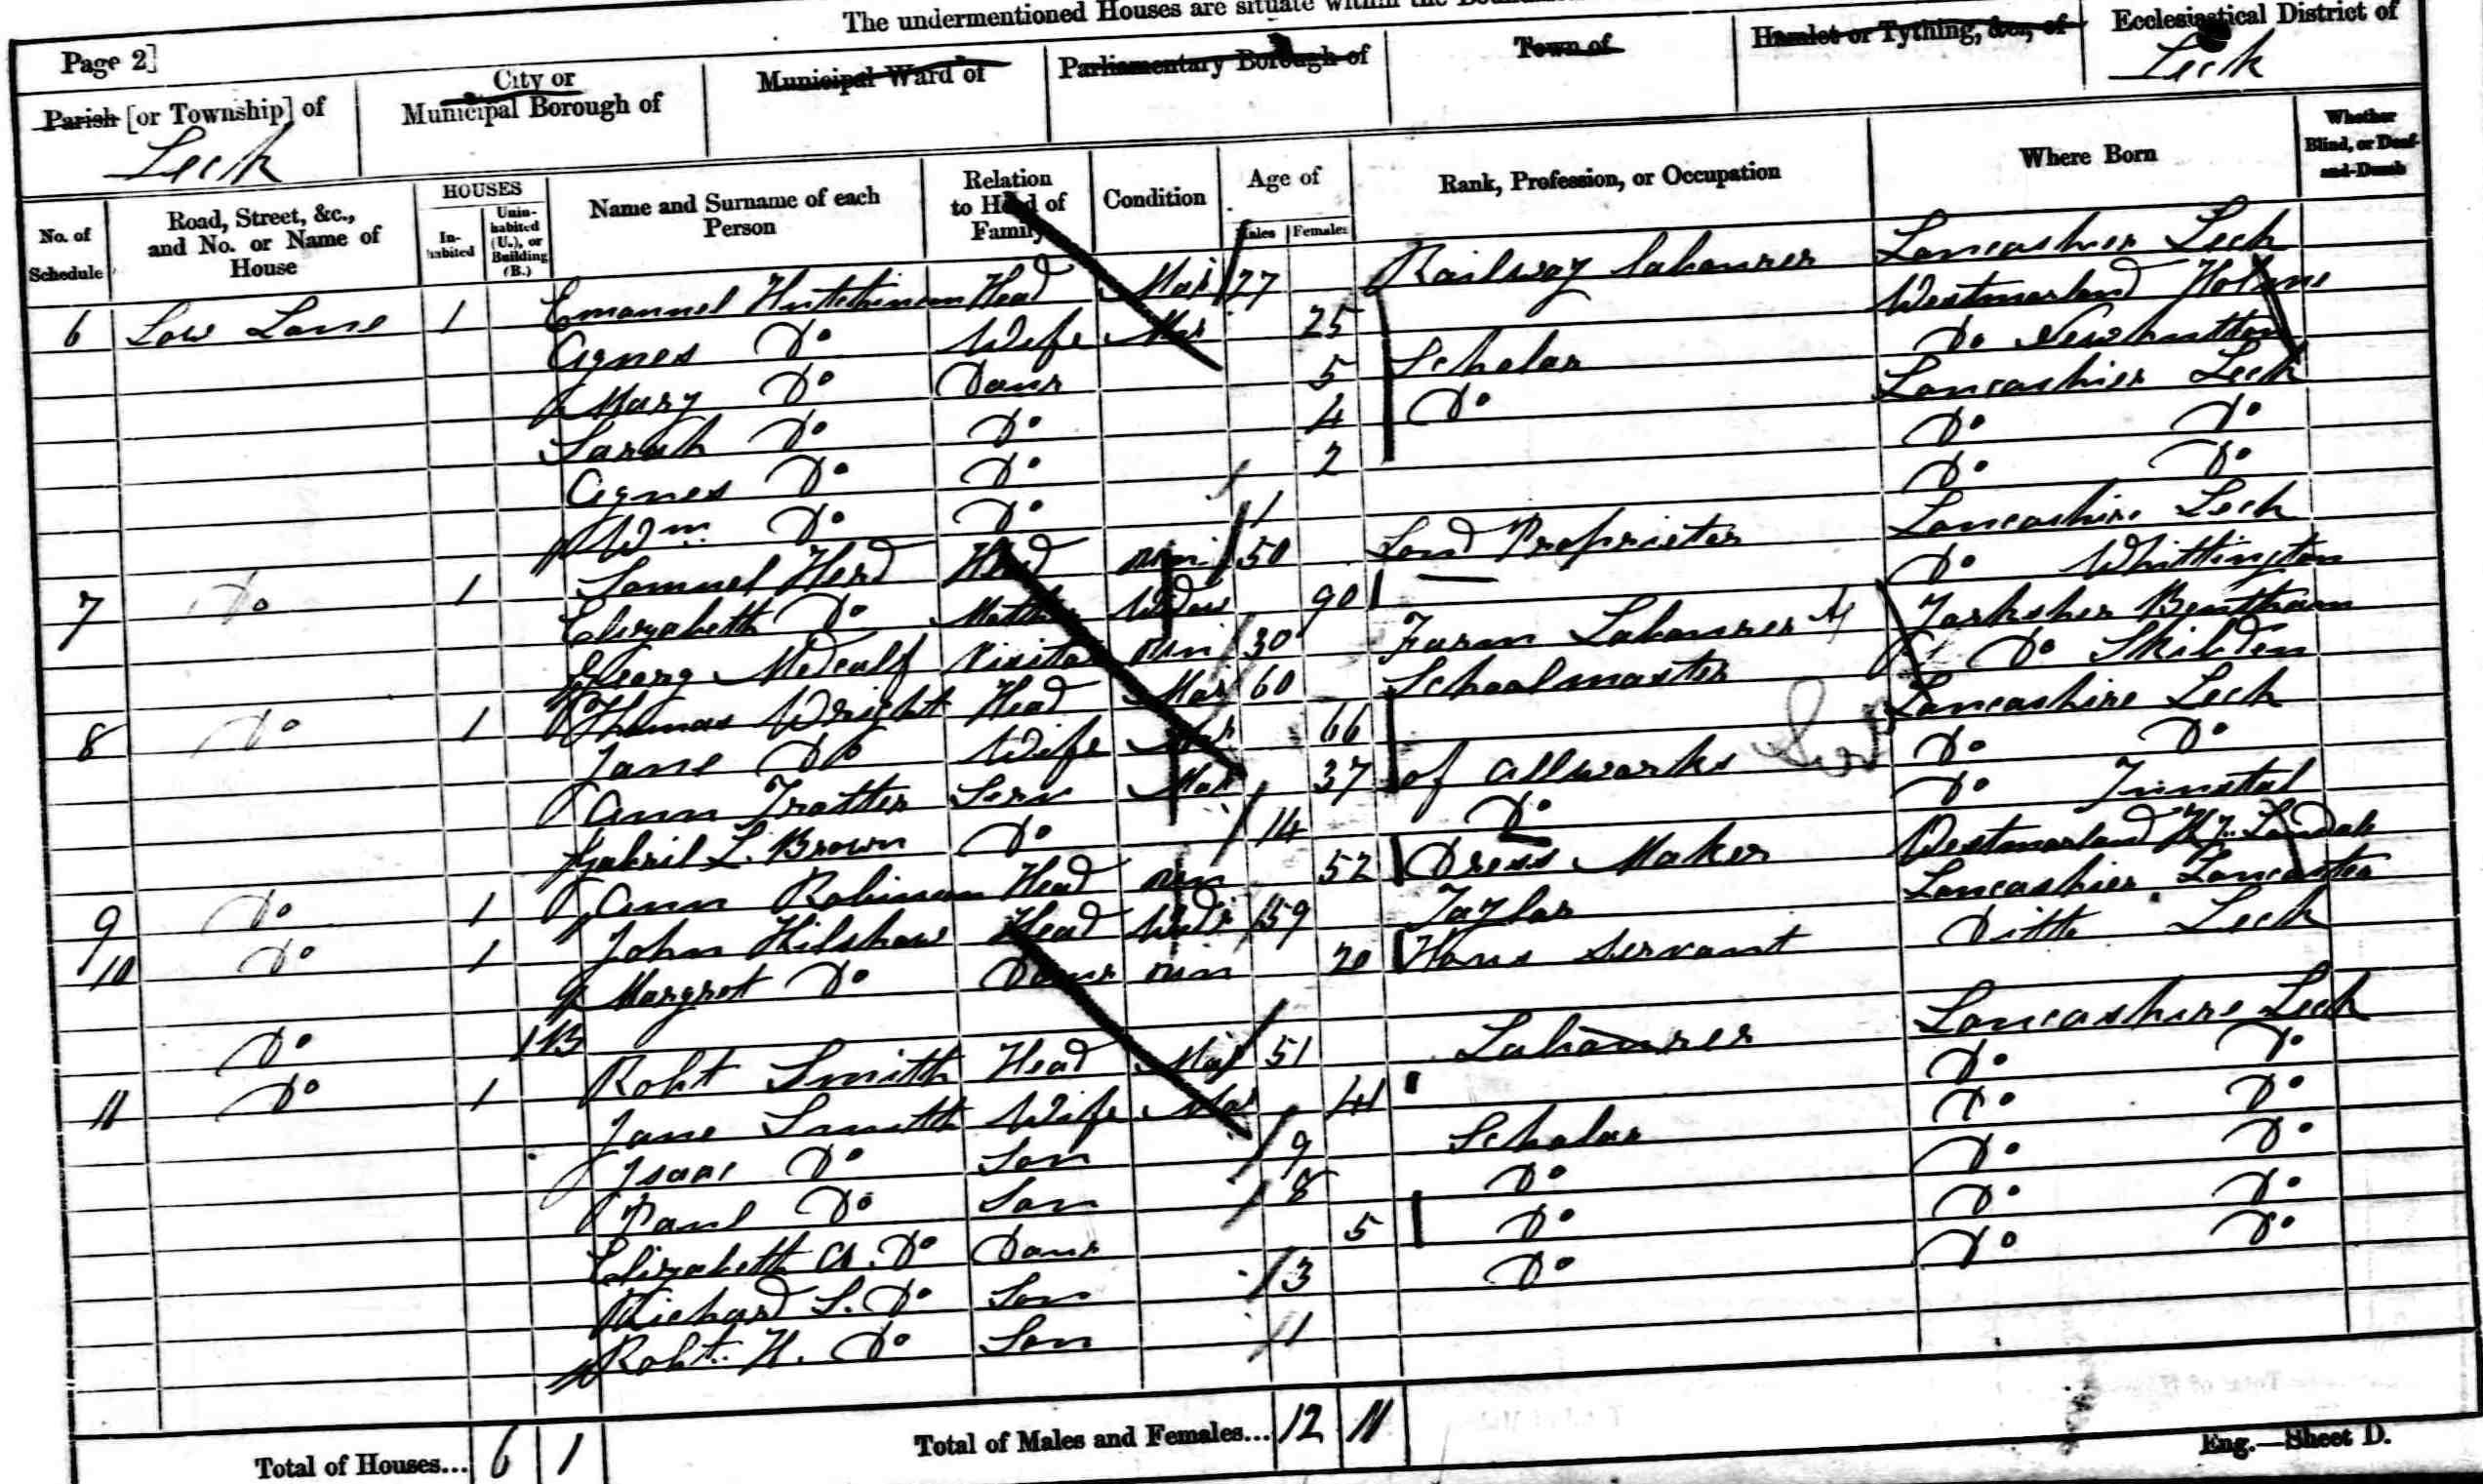 The undermentioned Houses are situate within the
Page 2]
Parish [or Township] of
Leck
City or
Municipal Borough of
Municipal Ward of
Parliamentary Borough of
Town of
Hamlet or Tything, &c., of
Ecclesiastical District of
Leck
No. of Schedule
Road, Street, &c., and No. or Name of House
HOUSES
In-habited
Unin-habited (U.), or Building (B.)
Name and Surname of each Person
Relation to Head of Family
Condition
Age of
Males
Females
Rank, Profession, or Occupation
Where Born
Whether Blind, or Deaf-and-Dumb
6 Low Lane 1 Emanuel Hutchinson Head Mar 27 Railway labourer Lancashier Leck
Agnes Do Wife Mar 25 Westmorland Holme
Mary Do Daur 5 Scholar Do Newhutton
Sarah Do Do 4 Do Lancashier Leck
Agnes Do Do 2 Do Do
Wm. Do Do 1 Do Do
7 Do 1 Samuel Herd Head Un 50 Land Proprietor Lancashire Leck
Elizabeth Do Mother Widow 90 Do Whittington
Georg Metcalf Visitor Un 30 Farm Labourer Yorksher Bentham
8 Do 1 Thomas Wright Head Mar 60 Schoolmaster Do Skibden
Jane Do Wife Mar 66 Lancashire Leck
Ann Trotter Serv Mar 37 of allworks Do Do
Gabril L. Brown Do 14 Do Do Tunstal
9 Do 1 Ann Robinson Head Un 52 Dress Maker Westmorland Ky. Londale
10 Do 1 John Kilshaw Head Widr 59 Taylor Lancashier Lancaster
Margret Do Daur Un 20 Hous Servant Ditto Leck
Do 1B
11 Do 1 Robt Smith Head Mar 51 Labourer Lancashire Leck
Jane Smith Wife Mar 41 Do Do
Isaac Do Son 9 Scholar Do Do
Paul Do Son 8 Do Do Do
Elizabeth A. Do Daur 5 Do Do Do
Richard S. Do Son 3 Do Do Do
Robt. H. Do Son 1
Total of Houses... 6 1
Total of Males and Females... 12 11
Eng.—Sheet D.